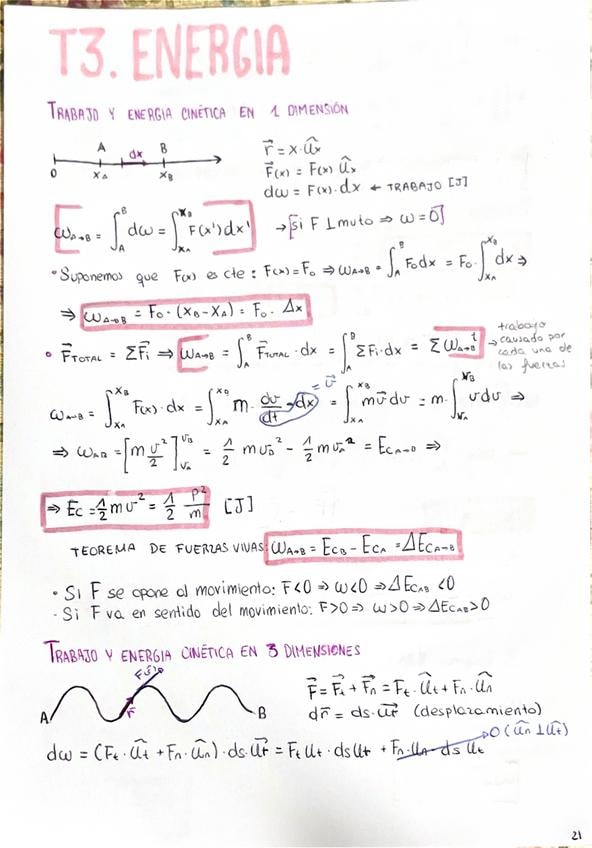 T3. ENERGIA
TRABAJO Y ENERGIA CINÉTICA EN 1 DIMENSIÓN
A dx B
0 xA xB
r⃗ = x·ûx
F⃗(x) = F(x) ûx
dω = F(x)·dx ← TRABAJO [J]
ωA→B = ∫_A^B dω = ∫_xA^xB F(x')dx' → [si F ⊥ muto ⇒ ω = 0⃗]
• Suponemos que F(x) es cte: F(x) = F0 ⇒ ωA→B = ∫_A^B F0 dx = F0·∫_xA^xB dx ⇒
⇒ ωA→B = F0·(xB - xA) = F0·Δx
• F⃗TOTAL = ΣF⃗i ⇒ ωA→B = ∫_A^B F⃗TOTAL·dx = ∫_A^B ΣFi·dx = Σ ωA→B^i → trabajo causado por cada una de las fuerzas
= v⃗
ωA→B = ∫_xA^xB F(x)·dx = ∫_xA^xB m·dv/dt·dx = ∫_xA^xB m v⃗ dv = m·∫_vA^vB v dv ⇒
⇒ ωAB = [m v²/2]_vA^vB = 1/2 m vB² - 1/2 m vA² = EcA→B ⇒
⇒ Ec = 1/2 m v² = 1/2 p²/m [J]
TEOREMA DE FUERZAS VIVAS: ωA→B = EcB - EcA = ΔEcA→B
• Si F se opone al movimiento: F<0 ⇒ ω<0 ⇒ ΔEcAB <0
· Si F va en sentido del movimiento: F>0 ⇒ ω>0 ⇒ ΔEcAB>0
TRABAJO Y ENERGIA CINÉTICA EN 3 DIMENSIONES
F(r⃗)
A r⃗ B
F⃗ = F⃗t + F⃗n = Ft·ût + Fn·ûn
dr⃗ = ds·u⃗t (desplazamiento)
0 (ûn ⊥ ût)
dω = (Ft·ût + Fn·ûn)·ds·u⃗t = Ft ut·ds ut + Fn·un ds ut
21